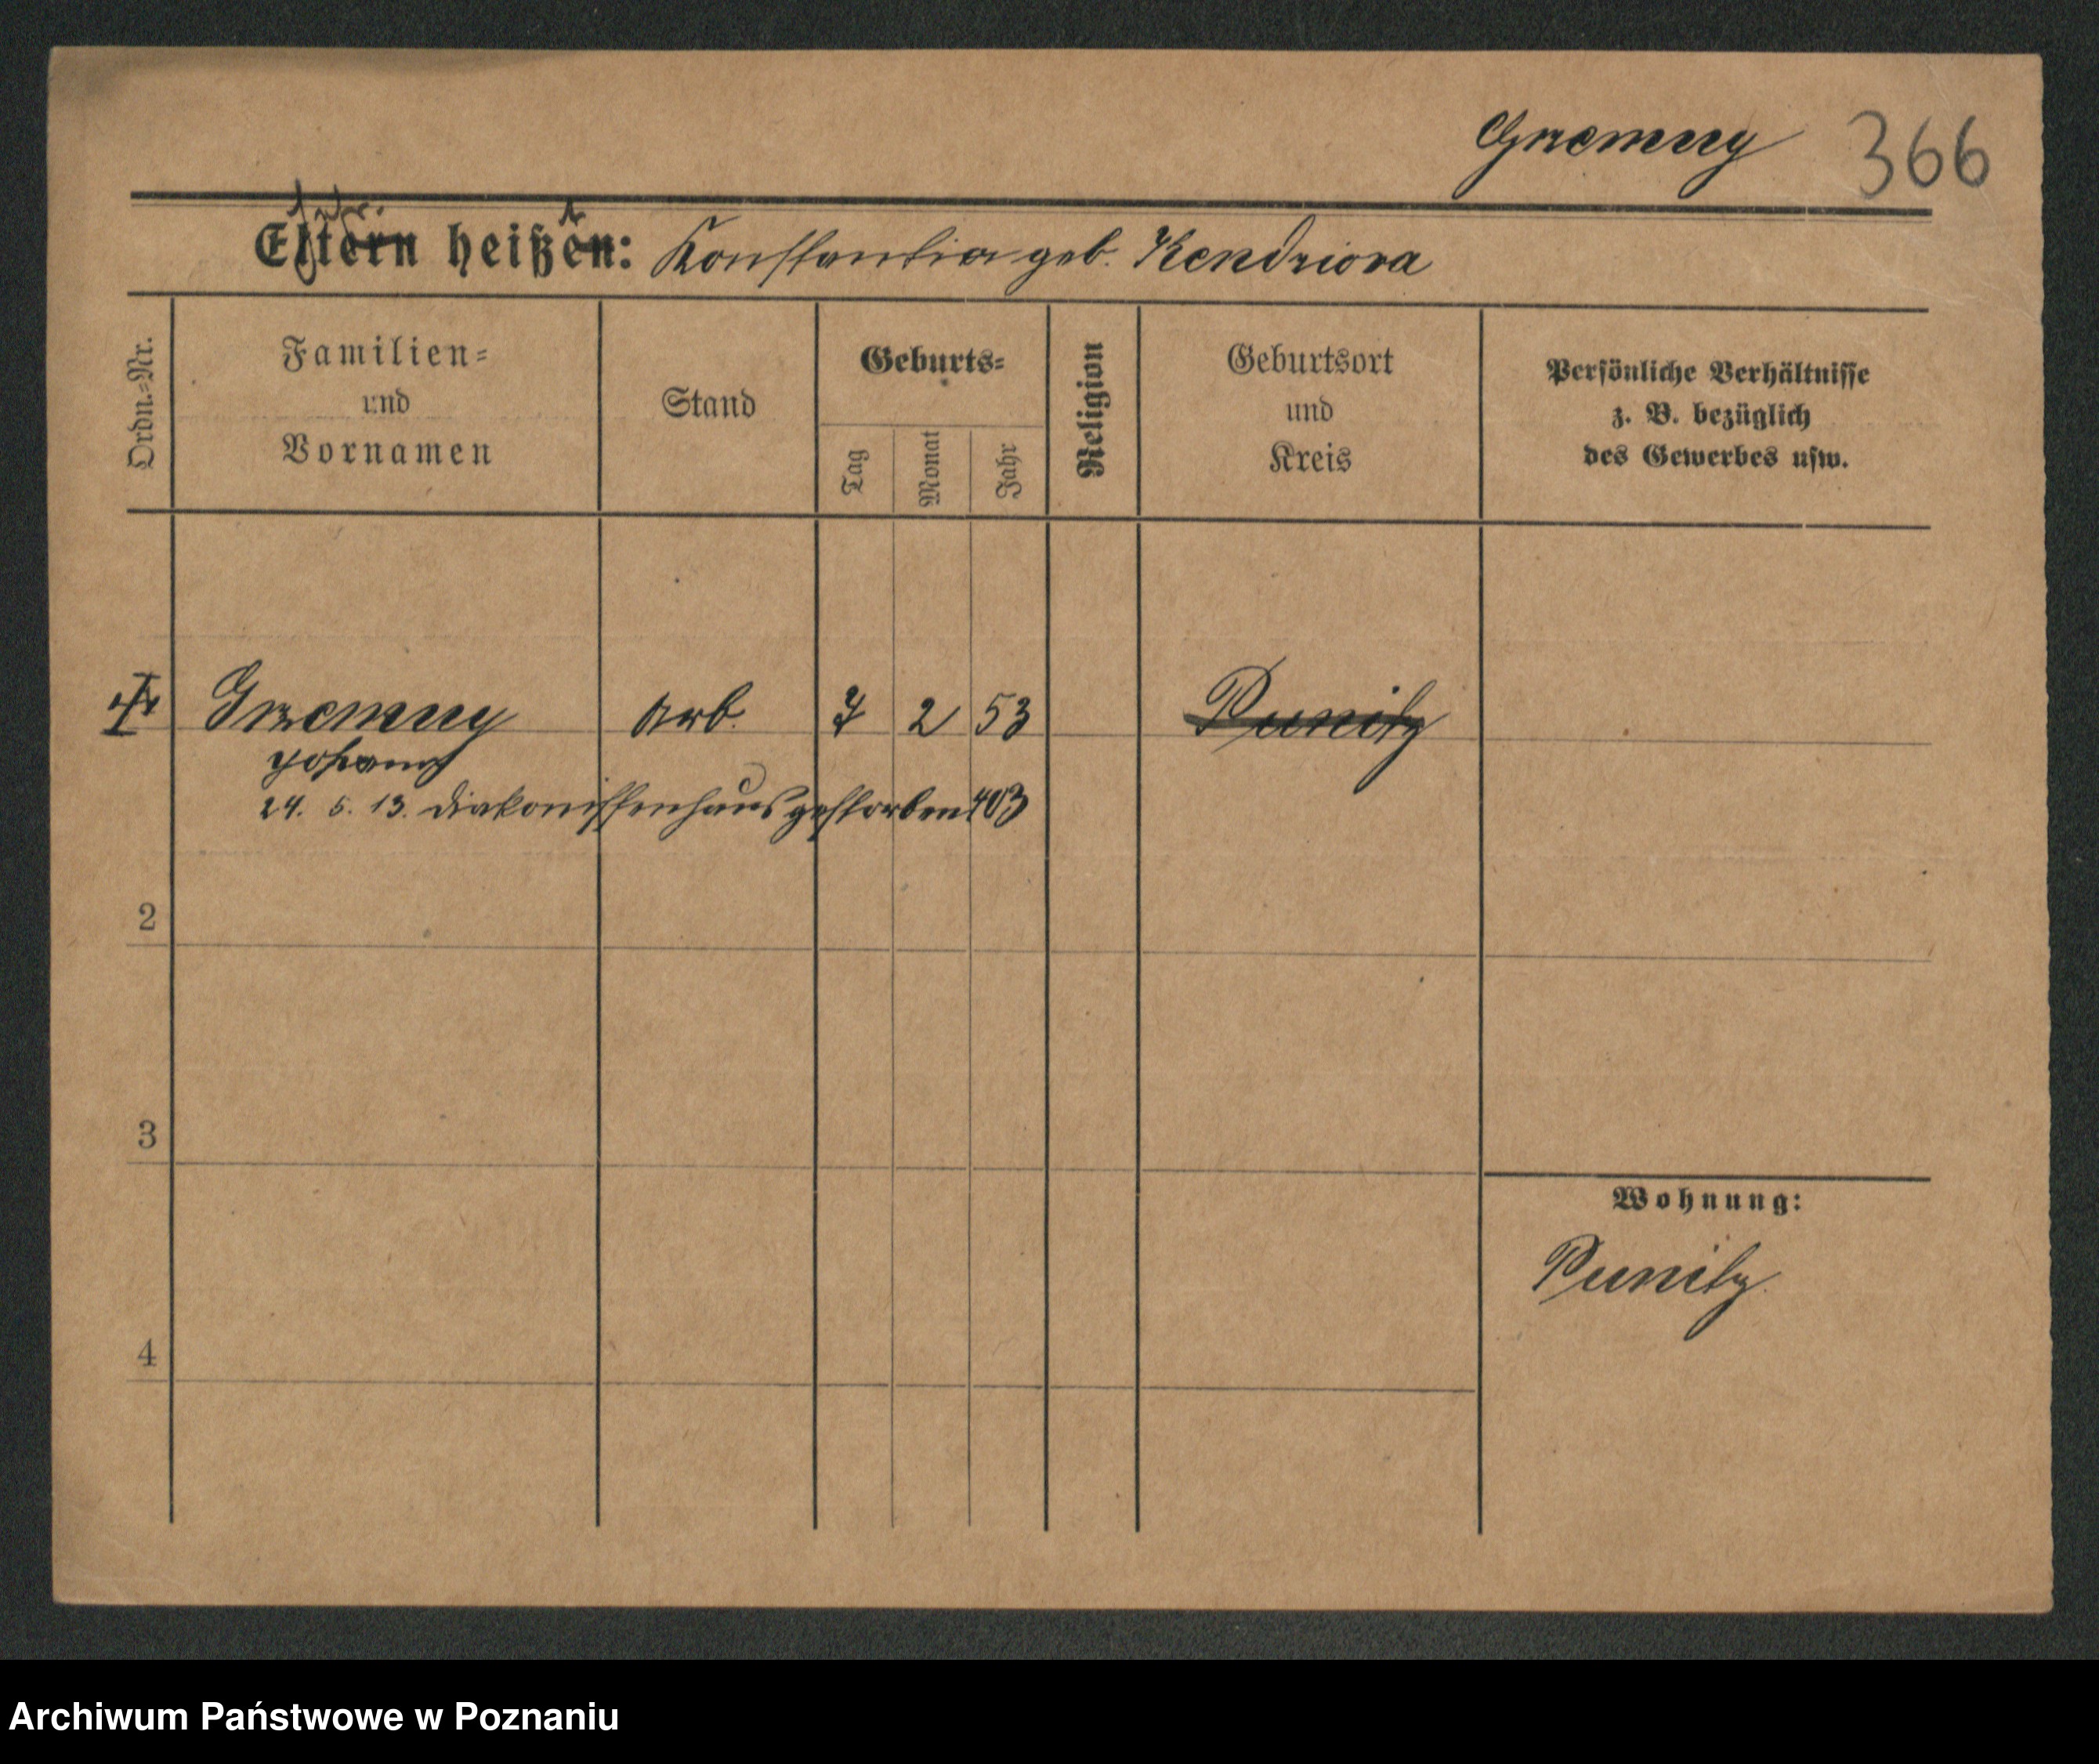 Grzemny 366
Eltern heißen: Konstantia geb. Kendziora
Ordn.=Nr.
Familien=
und
Vornamen
Stand
Geburts=
Tag
Monat
Jahr
Religion
Geburtsort
und
Kreis
Persönliche Verhältnisse
z. B. bezüglich
des Gewerbes usw.
Grzemny Arb. 7 2 53 Punitz
Johann
24. 5. 13. Diakonissenhaus gestorben 403
2
3
4
Wohnung:
Punitz
Archiwum Państwowe w Poznaniu